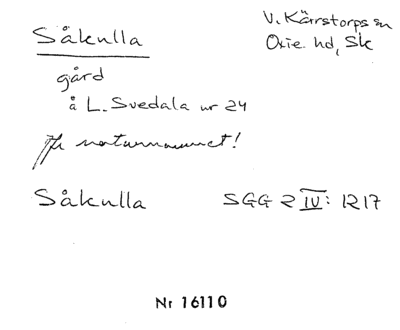 Såkulla
V. Kärrstorps sn
Oxie hd, Sk
gård
å L. Svedala nr 24
Jfr naturnamnet!
Såkulla SGG 2 IV: 1217
Nr 16110